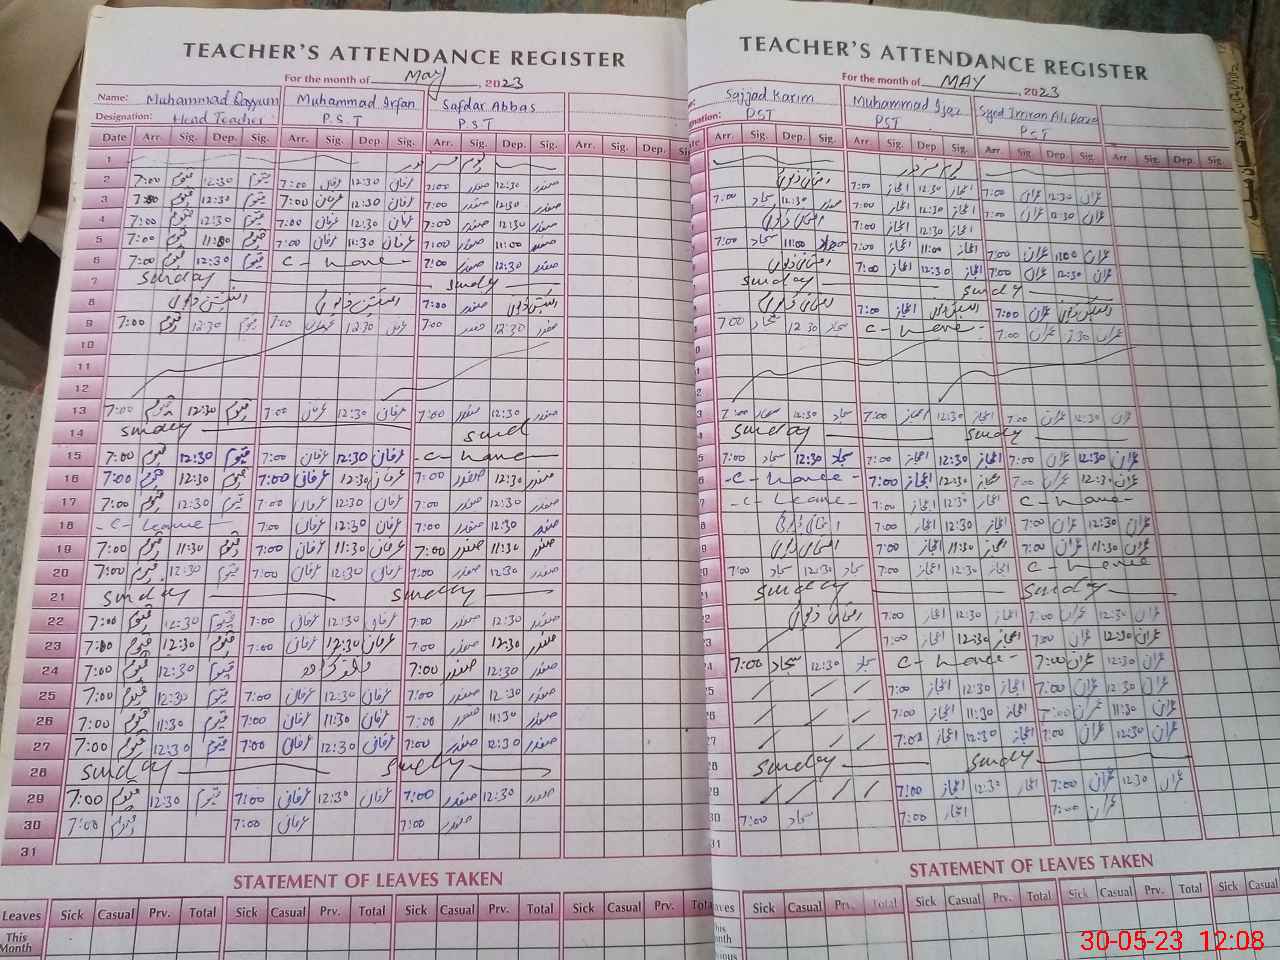 TEACHER'S ATTENDANCE REGISTER
For the month of May, 2023
Name: Muhammad Qayyum Muhammad Irfan Safdar Abbas
Designation: Head Teacher P.S.T P.S.T
Date Arr. Sig. Dep. Sig. Arr. Sig. Dep. Sig. Arr. Sig. Dep. Sig. Arr. Sig. Dep. Sig.
1
2 7:00 قیوم 12:30 قیوم 7:00 عرفان 12:30 عرفان 7:00 صفدر 12:30 صفدر
3 7:00 قیوم 12:30 قیوم 7:00 عرفان 12:30 عرفان 7:00 صفدر 12:30 صفدر
4 7:00 قیوم 12:30 قیوم 7:00 عرفان 12:30 عرفان 7:00 صفدر 12:30 صفدر
5 7:00 قیوم 11:00 قیوم 7:00 عرفان 11:30 عرفان 7:00 صفدر 11:00 صفدر
6 7:00 قیوم 12:30 قیوم C- Leave 7:00 صفدر 12:30 صفدر
7 Sunday Sunday
8 7:00 صفدر
9 7:00 قیوم 12:30 قیوم 7:00 عرفان 12:30 عرفان 7:00 صفدر 12:30 صفدر
10
11
12
13 7:00 قیوم 12:30 قیوم 7:00 عرفان 12:30 عرفان 7:00 صفدر 12:30 صفدر
14 Sunday Sund
15 7:00 قیوم 12:30 قیوم 7:00 عرفان 12:30 عرفان -C- Leave-
16 7:00 قیوم 12:30 قیوم 7:00 عرفان 12:30 عرفان 7:00 صفدر 12:30 صفدر
17 7:00 قیوم 12:30 قیوم 7:00 عرفان 12:30 عرفان 7:00 صفدر 12:30 صفدر
18 -C- Leave- 7:00 عرفان 12:30 عرفان 7:00 صفدر 12:30 صفدر
19 7:00 قیوم 11:30 قیوم 7:00 عرفان 11:30 عرفان 7:00 صفدر 11:30 صفدر
20 7:00 قیوم 12:30 قیوم 7:00 عرفان 12:30 عرفان 7:00 صفدر 12:30 صفدر
21 Sunday Sunday
22 7:00 قیوم 12:30 قیوم 7:00 عرفان 12:30 عرفان 7:00 صفدر 12:30 صفدر
23 7:00 قیوم 12:30 قیوم 7:00 عرفان 12:30 عرفان 7:00 صفدر 12:30 صفدر
24 7:00 قیوم 12:30 قیوم 7:00 صفدر 12:30 صفدر
25 7:00 قیوم 12:30 قیوم 7:00 عرفان 12:30 عرفان 7:00 صفدر 12:30 صفدر
26 7:00 قیوم 11:30 قیوم 7:00 عرفان 11:30 عرفان 7:00 صفدر 11:30 صفدر
27 7:00 قیوم 12:30 قیوم 7:00 عرفان 12:30 عرفان 7:00 صفدر 12:30 صفدر
28 Sunday Sunday
29 7:00 قیوم 12:30 قیوم 7:00 عرفان 12:30 عرفان 7:00 صفدر 12:30 صفدر
30 7:00 قیوم 7:00 عرفان 7:00 صفدر
31
STATEMENT OF LEAVES TAKEN
Leaves Sick Casual Prv. Total Sick Casual Prv. Total Sick Casual Prv. Total Sick Casual Prv. Total
This Month
TEACHER'S ATTENDANCE REGISTER
For the month of MAY, 2023
Sajjad Karim Muhammad Ijaz Syed Imran Ali Raza
PST PST PST
Arr. Sig. Dep. Sig. Arr. Sig. Dep. Sig. Arr. Sig. Dep. Sig. Arr. Sig. Dep. Sig.
7:00 اعجاز 12:30 اعجاز 7:00 عمران 12:30 عمران
7:00 سجاد 12:30 سجاد 7:00 اعجاز 12:30 اعجاز 7:00 عمران 12:30 عمران
7:00 اعجاز 12:30 اعجاز
7:00 سجاد 11:00 سجاد 7:00 اعجاز 11:00 اعجاز 7:00 عمران عمران
7:00 اعجاز 12:30 اعجاز 7:00 عمران 12:30 عمران
Sunday Sunday
7:00 اعجاز 7:00 عمران
7:00 سجاد 12:30 سجاد C- Leave- 7:00 عمران عمران
7:00 سجاد 12:30 سجاد 7:00 اعجاز 12:30 اعجاز 7:00 عمران 12:30 عمران
Sunday Sunday
7:00 سجاد 12:30 سجاد 7:00 اعجاز 12:30 اعجاز 7:00 عمران 12:30 عمران
-C- Leave- 7:00 اعجاز 12:30 اعجاز 7:00 عمران 12:30 عمران
-C- Leave- 7:00 اعجاز 12:30 اعجاز C- Leave-
7:00 اعجاز 12:30 اعجاز 7:00 عمران 12:30 عمران
7:00 اعجاز 11:30 اعجاز 7:00 عمران 11:30 عمران
7:00 سجاد 12:30 سجاد 7:00 اعجاز 12:30 اعجاز C- Leave
Sunday Sunday
7:00 اعجاز 12:30 اعجاز 7:00 عمران 12:30 عمران
7:00 اعجاز 12:30 اعجاز 7:00 عمران 12:30 عمران
7:00 سجاد 12:30 سجاد C- Leave- 7:00 عمران 12:30 عمران
7:00 اعجاز 12:30 اعجاز 7:00 عمران 12:30 عمران
7:00 اعجاز 11:30 اعجاز 7:00 عمران 11:30 عمران
7:00 اعجاز 12:30 اعجاز 7:00 عمران 12:30 عمران
Sunday Sunday
7:00 اعجاز 12:30 اعجاز 7:00 عمران 12:30 عمران
7:00 سجاد 7:00 اعجاز 7:00 عمران
STATEMENT OF LEAVES TAKEN
Sick Casual Prv. Total Sick Casual Prv. Total Sick Casual Prv. Total Sick Casual
30-05-23 12:08